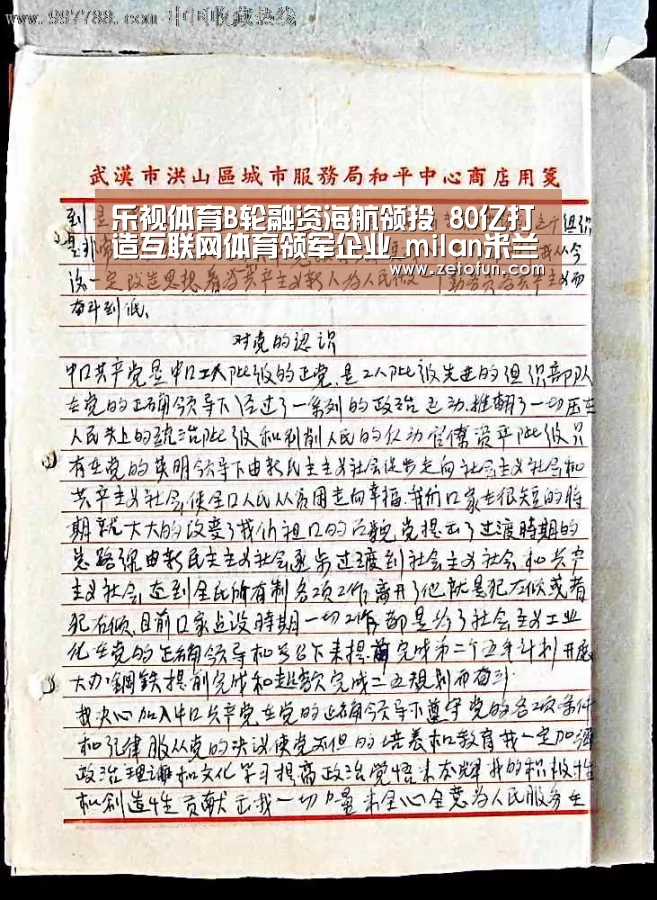 www.997788.com 中国收藏热线
武漢市洪山區城市服務局和平中心商店用箋
乐视体育B轮融资海航领投 80亿打
造互联网体育领军企业_milan米兰
www.zetofun.com
一定改造思想
奋斗到低。
对党的認识
中口共产党是中口工人阶级的正党，是工人阶级先进的组织部队
在党的正确领导下经过了一系列的政治运动，推翻了一切压在
人民头上的统治阶级和剥削人民的反动官僚资产阶级只
有在党的英明领导下由新民主主义社会逐步走向社会主义社会和
共产主义社会，使全口人民从贫困走向幸福，我们口家在很短的時
期就大大的改变了我们祖口的面貌，党提出了过渡時期的
总路缐由新民主主义社会逐步过渡到社会主义社会和共产
主义社会，达到全民所有制各项工作离开了他就是犯左倾或者
犯右倾，目前口家建设時期一切工作都是为了社会主义工业
化在党的正确领导和号召下来提前完成第二个五年计划开展
大办鋼鉄提前完成和超额完成二五规划而奋斗
我决心加入中口共产党在党的正确领导下遵守党的各项条件
和纪律服从党的决议使党不但的培养和教育我一定加强
政治理论和文化学习提高政治觉悟来发辉我的积极性
和创造性贡献出我一切力量来全心全意为人民服务在